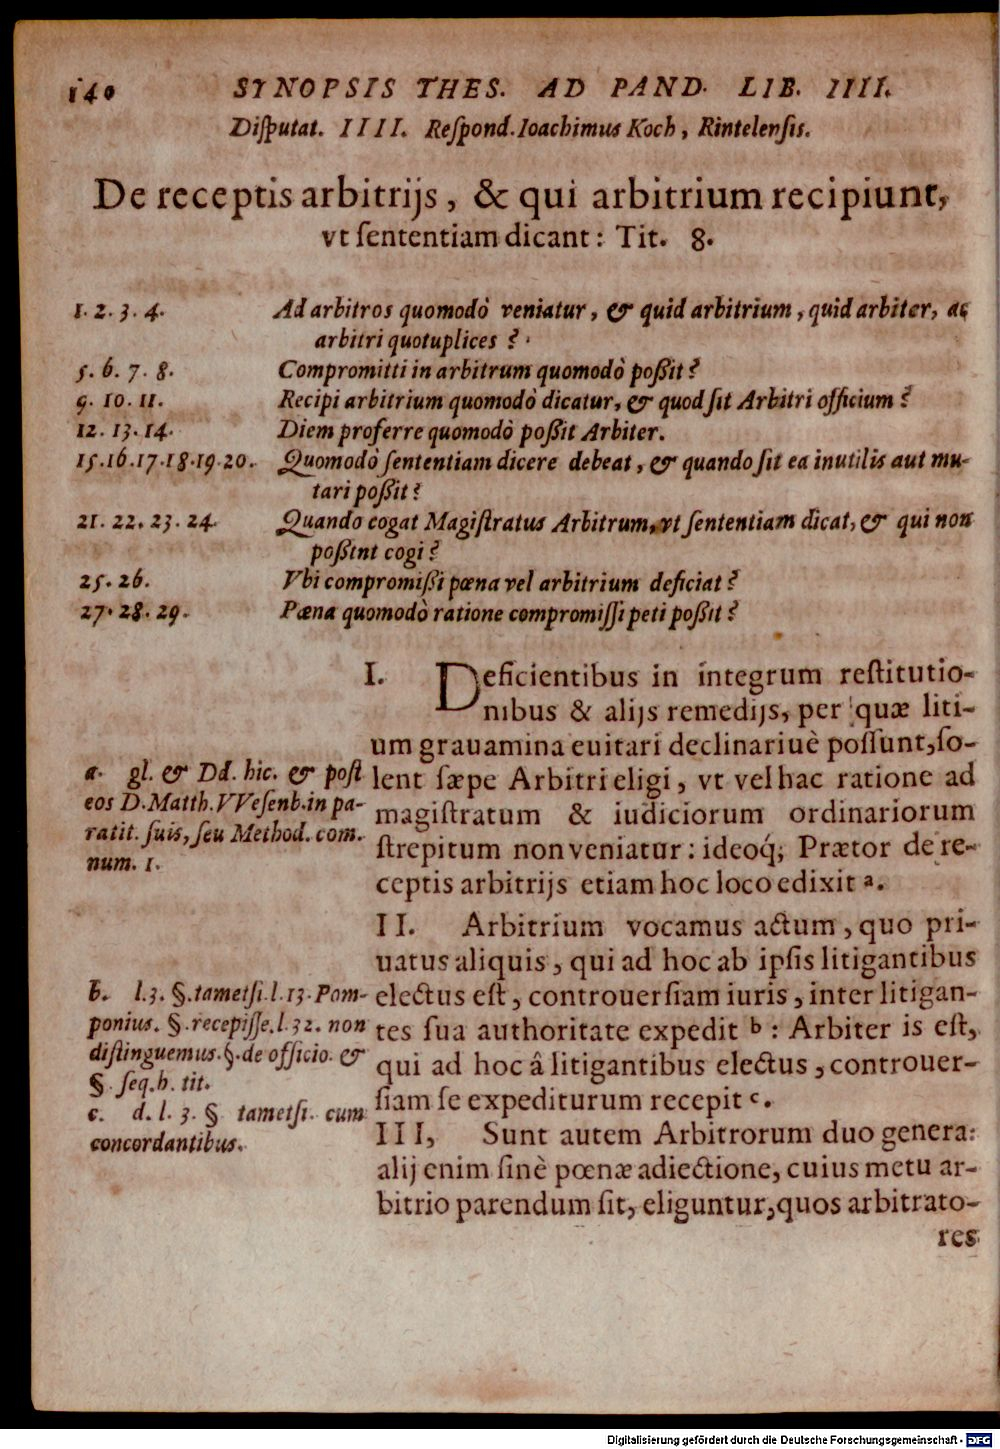 140 SYNOPSIS THES. AD PAND. LIB. IIII.
Diſputat. IIII. Reſpond. Ioachimus Koch, Rintelenſis.
De receptis arbitrijs, & qui arbitrium recipiunt,
vt ſententiam dicant: Tit. 8.
1. 2. 3. 4. Ad arbitros quomodò veniatur, & quid arbitrium, quid arbiter, ac
arbitri quotuplices?
5. 6. 7. 8. Compromitti in arbitrum quomodò poßit?
9. 10. 11. Recipi arbitrium quomodò dicatur, & quod ſit Arbitri officium?
12. 13. 14. Diem proferre quomodò poßit Arbiter.
15. 16. 17. 18. 19. 20. Quomodò ſententiam dicere debeat, & quando ſit ea inutilis aut mu-
tari poßit?
21. 22. 23. 24. Quando cogat Magiſtratus Arbitrum, vt ſententiam dicat, & qui non
poßint cogi?
25. 26. Vbi compromißi pœna vel arbitrium deficiat?
27. 28. 29. Pœna quomodò ratione compromiſſi peti poßit?
I. Deficientibus in integrum reſtitutio-
nibus & alijs remedijs, per quæ liti-
um grauamina euitari declinariuè poſſunt, ſo-
lent ſæpe Arbitri eligi, vt vel hac ratione ad
magiſtratum & iudiciorum ordinariorum
ſtrepitum non veniatur: ideoq́; Prætor de re-
ceptis arbitrijs etiam hoc loco edixit a.
a. gl. & Dd. hic. & poſt
eos D. Matth. VVeſenb. in pa-
ratit. ſuis, ſeu Method. com.
num. 1.
II. Arbitrium vocamus actum, quo pri-
uatus aliquis, qui ad hoc ab ipſis litigantibus
electus eſt, controuerſiam iuris, inter litigan-
tes ſua authoritate expedit b: Arbiter is eſt,
qui ad hoc â litigantibus electus, controuer-
ſiam ſe expediturum recepit c.
b. l. 3. §. tametſi. l. 13. Pom-
ponius. §. recepiſſe. l. 32. non
diſtinguemus. §. de officio. &
§. ſeq. h. tit.
c. d. l. 3. § tametſi. cum
concordantibus.
III, Sunt autem Arbitrorum duo genera:
alij enim ſinè pœnæ adiectione, cuius metu ar-
bitrio parendum ſit, eliguntur, quos arbitrato-
res
Digitalisierung gefördert durch die Deutsche Forschungsgemeinschaft - DFG